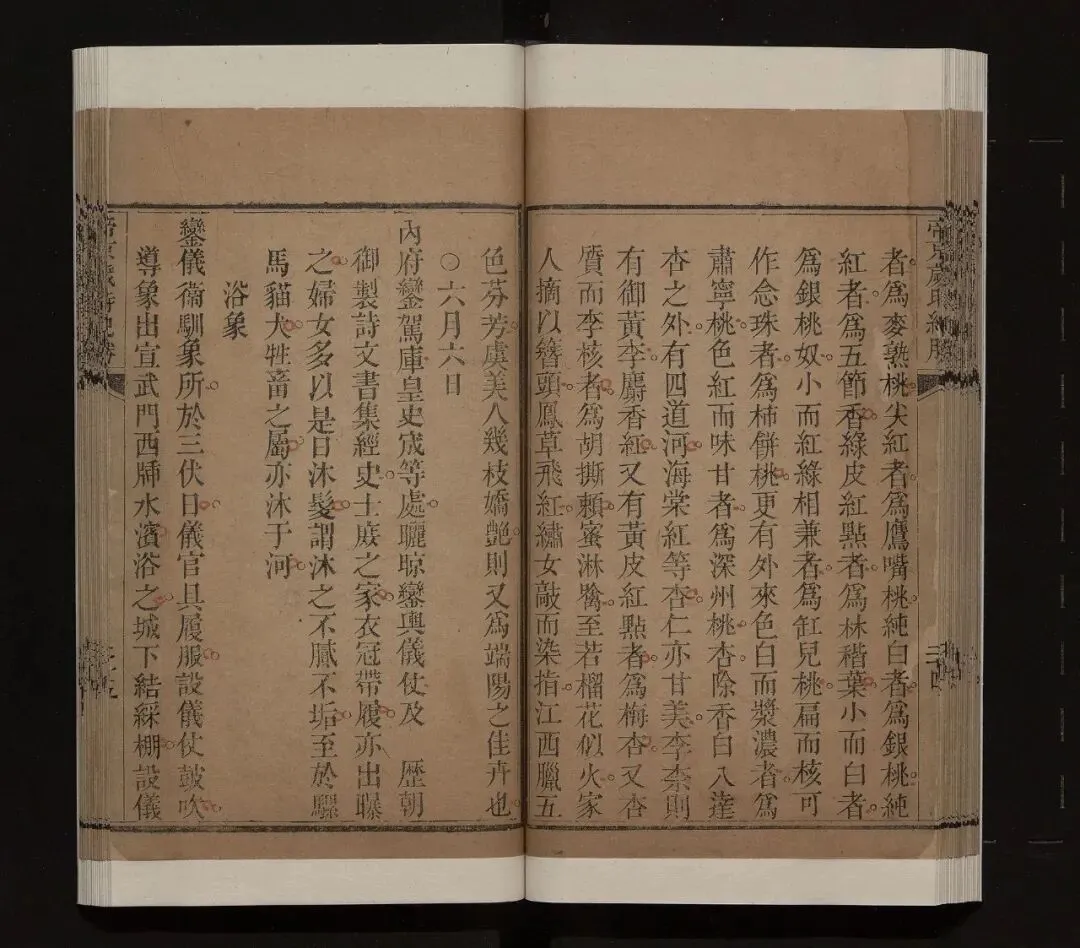 帝京歲時紀勝
者爲麥熟桃尖紅者爲鷹嘴桃純白者爲銀桃純
紅者爲五節香綠皮紅點者爲林稭葉小而白者
爲銀桃奴小而紅綠相兼者爲缸兒桃扁而核可
作念珠者爲柿餅桃更有外來色白而漿濃者爲
肅寧桃色紅而味甘者爲深州桃杏除香白八達
杏之外有四道河海棠紅等杏仁亦甘美李柰則
有御黃李麝香紅又有黃皮紅點者爲梅杏又杏
質而李核者爲胡撕賴蜜淋噙至若榴花似火家
人摘以簪頭鳳草飛紅繡女敲而染指江西臘五
色芬芳虞美人幾枝嬌艶則又爲端陽之佳卉也
○六月六日
內府鑾駕庫皇史宬等處曬晾鑾輿儀仗及 歷朝
御製詩文書集經史士庶之家衣冠帶履亦出曝
之婦女多以是日沐髮謂沐之不膩不垢至於騾
馬貓犬牲畜之屬亦沐于河
浴象
鑾儀衛馴象所於三伏日儀官具履服設儀仗鼓吹
導象出宣武門西牐水濱浴之城下結綵棚設儀
帝京歲時紀勝